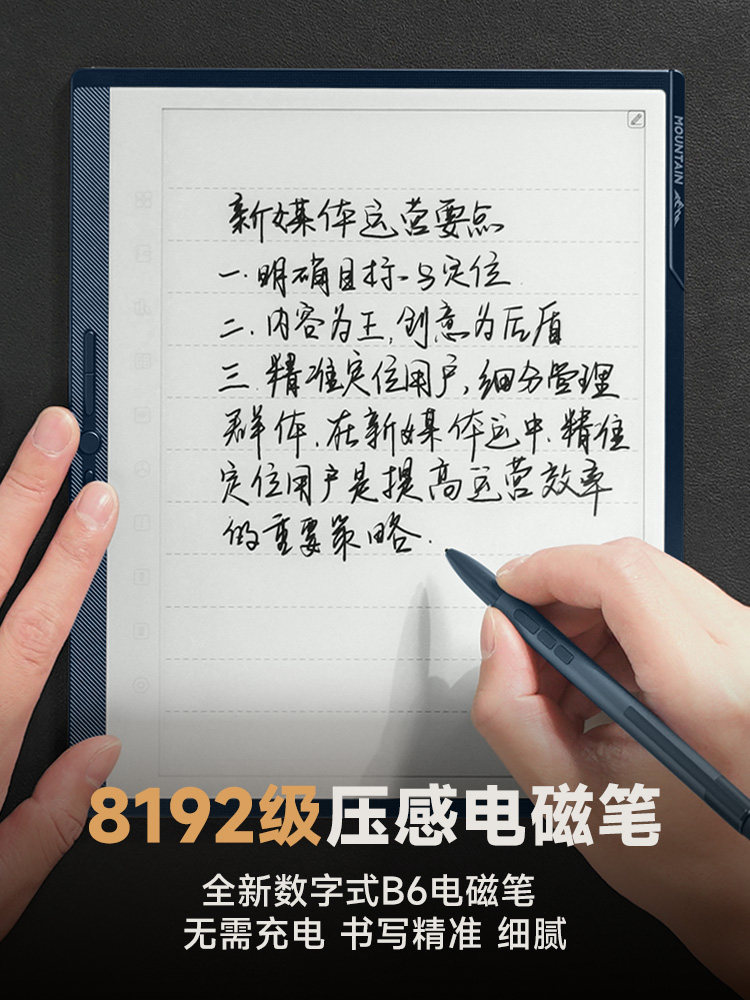 MOUNTAIN
新媒体运营要点
一.明确目标与定位
二.内容为王,创意为后盾
三.精准定位用户,细分管理
群体.在新媒体运中.精准
定位用户是提高运营效率
的重要策略.
8192级压感电磁笔
全新数字式B6电磁笔
无需充电 书写精准 细腻